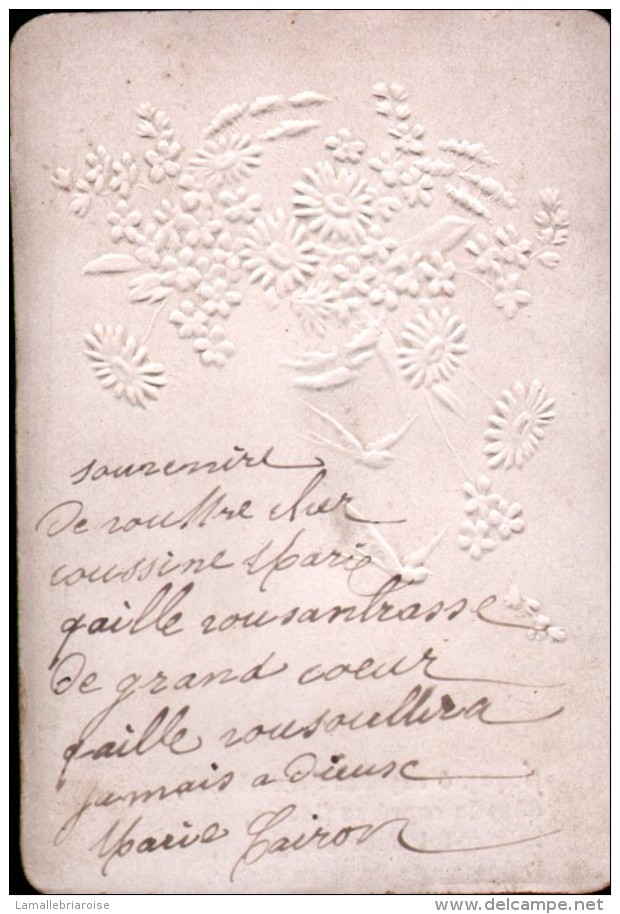 souvenire
de vousttre cher
coussine Marie
qaille vousanbrasse
de grand coeur
qaille vousoullira
jamais adieuse
Marie Cairon
Lamallebriaroise
delcampe.net